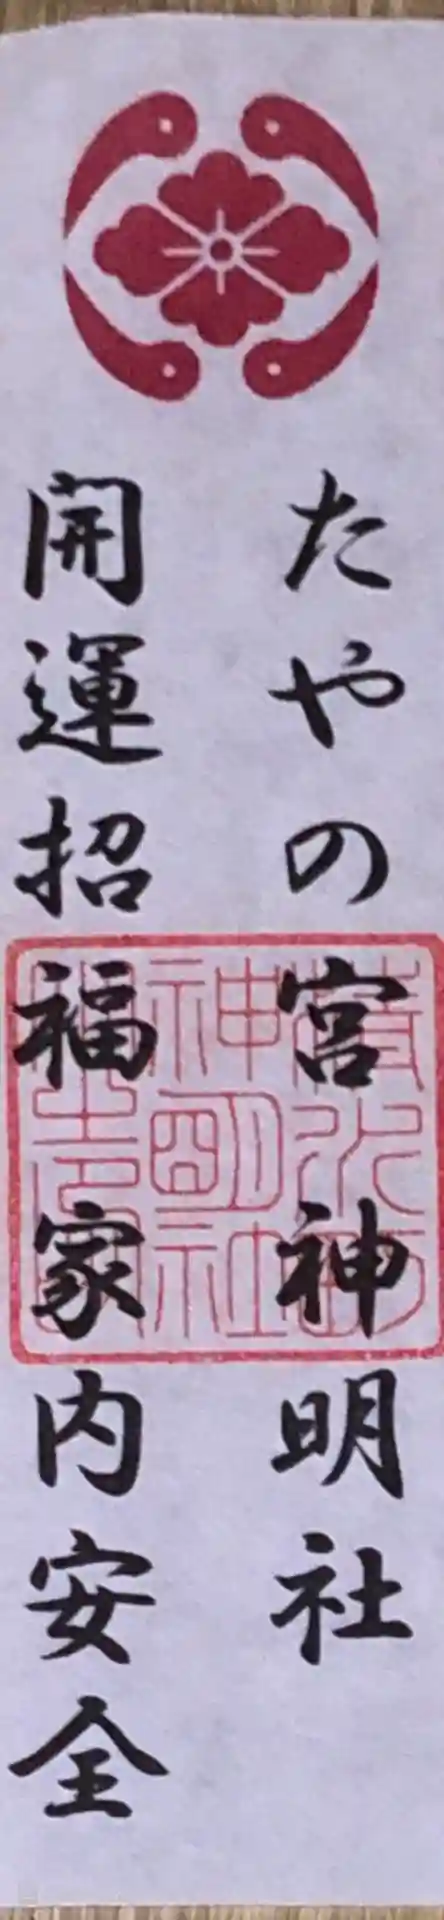 たやの宮神明社
開運招福 家内安全